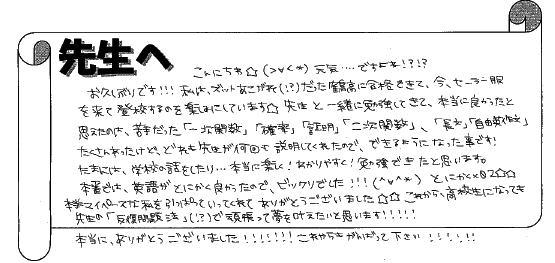 先生へ
こんにちわ☆(>∨<*)元気…ですよね!?!?
お久しぶりです!!!私は、ズットあこがれ(!?)だった高に合格できて、今、セーラー服
を来て登校するのを楽しみにしています☆先生と一緒に勉強してきて、本当に良かったと
思えたのは、苦手だった「一次関数」「確率」「証明」「二次関数」、「長文」「自由英作文」
たくさんあったけど、どれも先生が何回も説明してくれたので、できるようになった事です!
たまには、学校の話をしたり…本当に楽しく!わかりやすく!勉強できたと思います。
本番では、英語がとにかく良かったので、ビックリでした!!!(^∨^*)とにかく
マイペースな私を引っぱっていってくれてありがとうございました☆☆これから、高校生になっても
先生の「反復問題法」(!?)で頑張って夢を叶えたいと思います!!!!!
本当に、ありがとうございました!!!!!!!これからもがんばって下さい!!!!!!